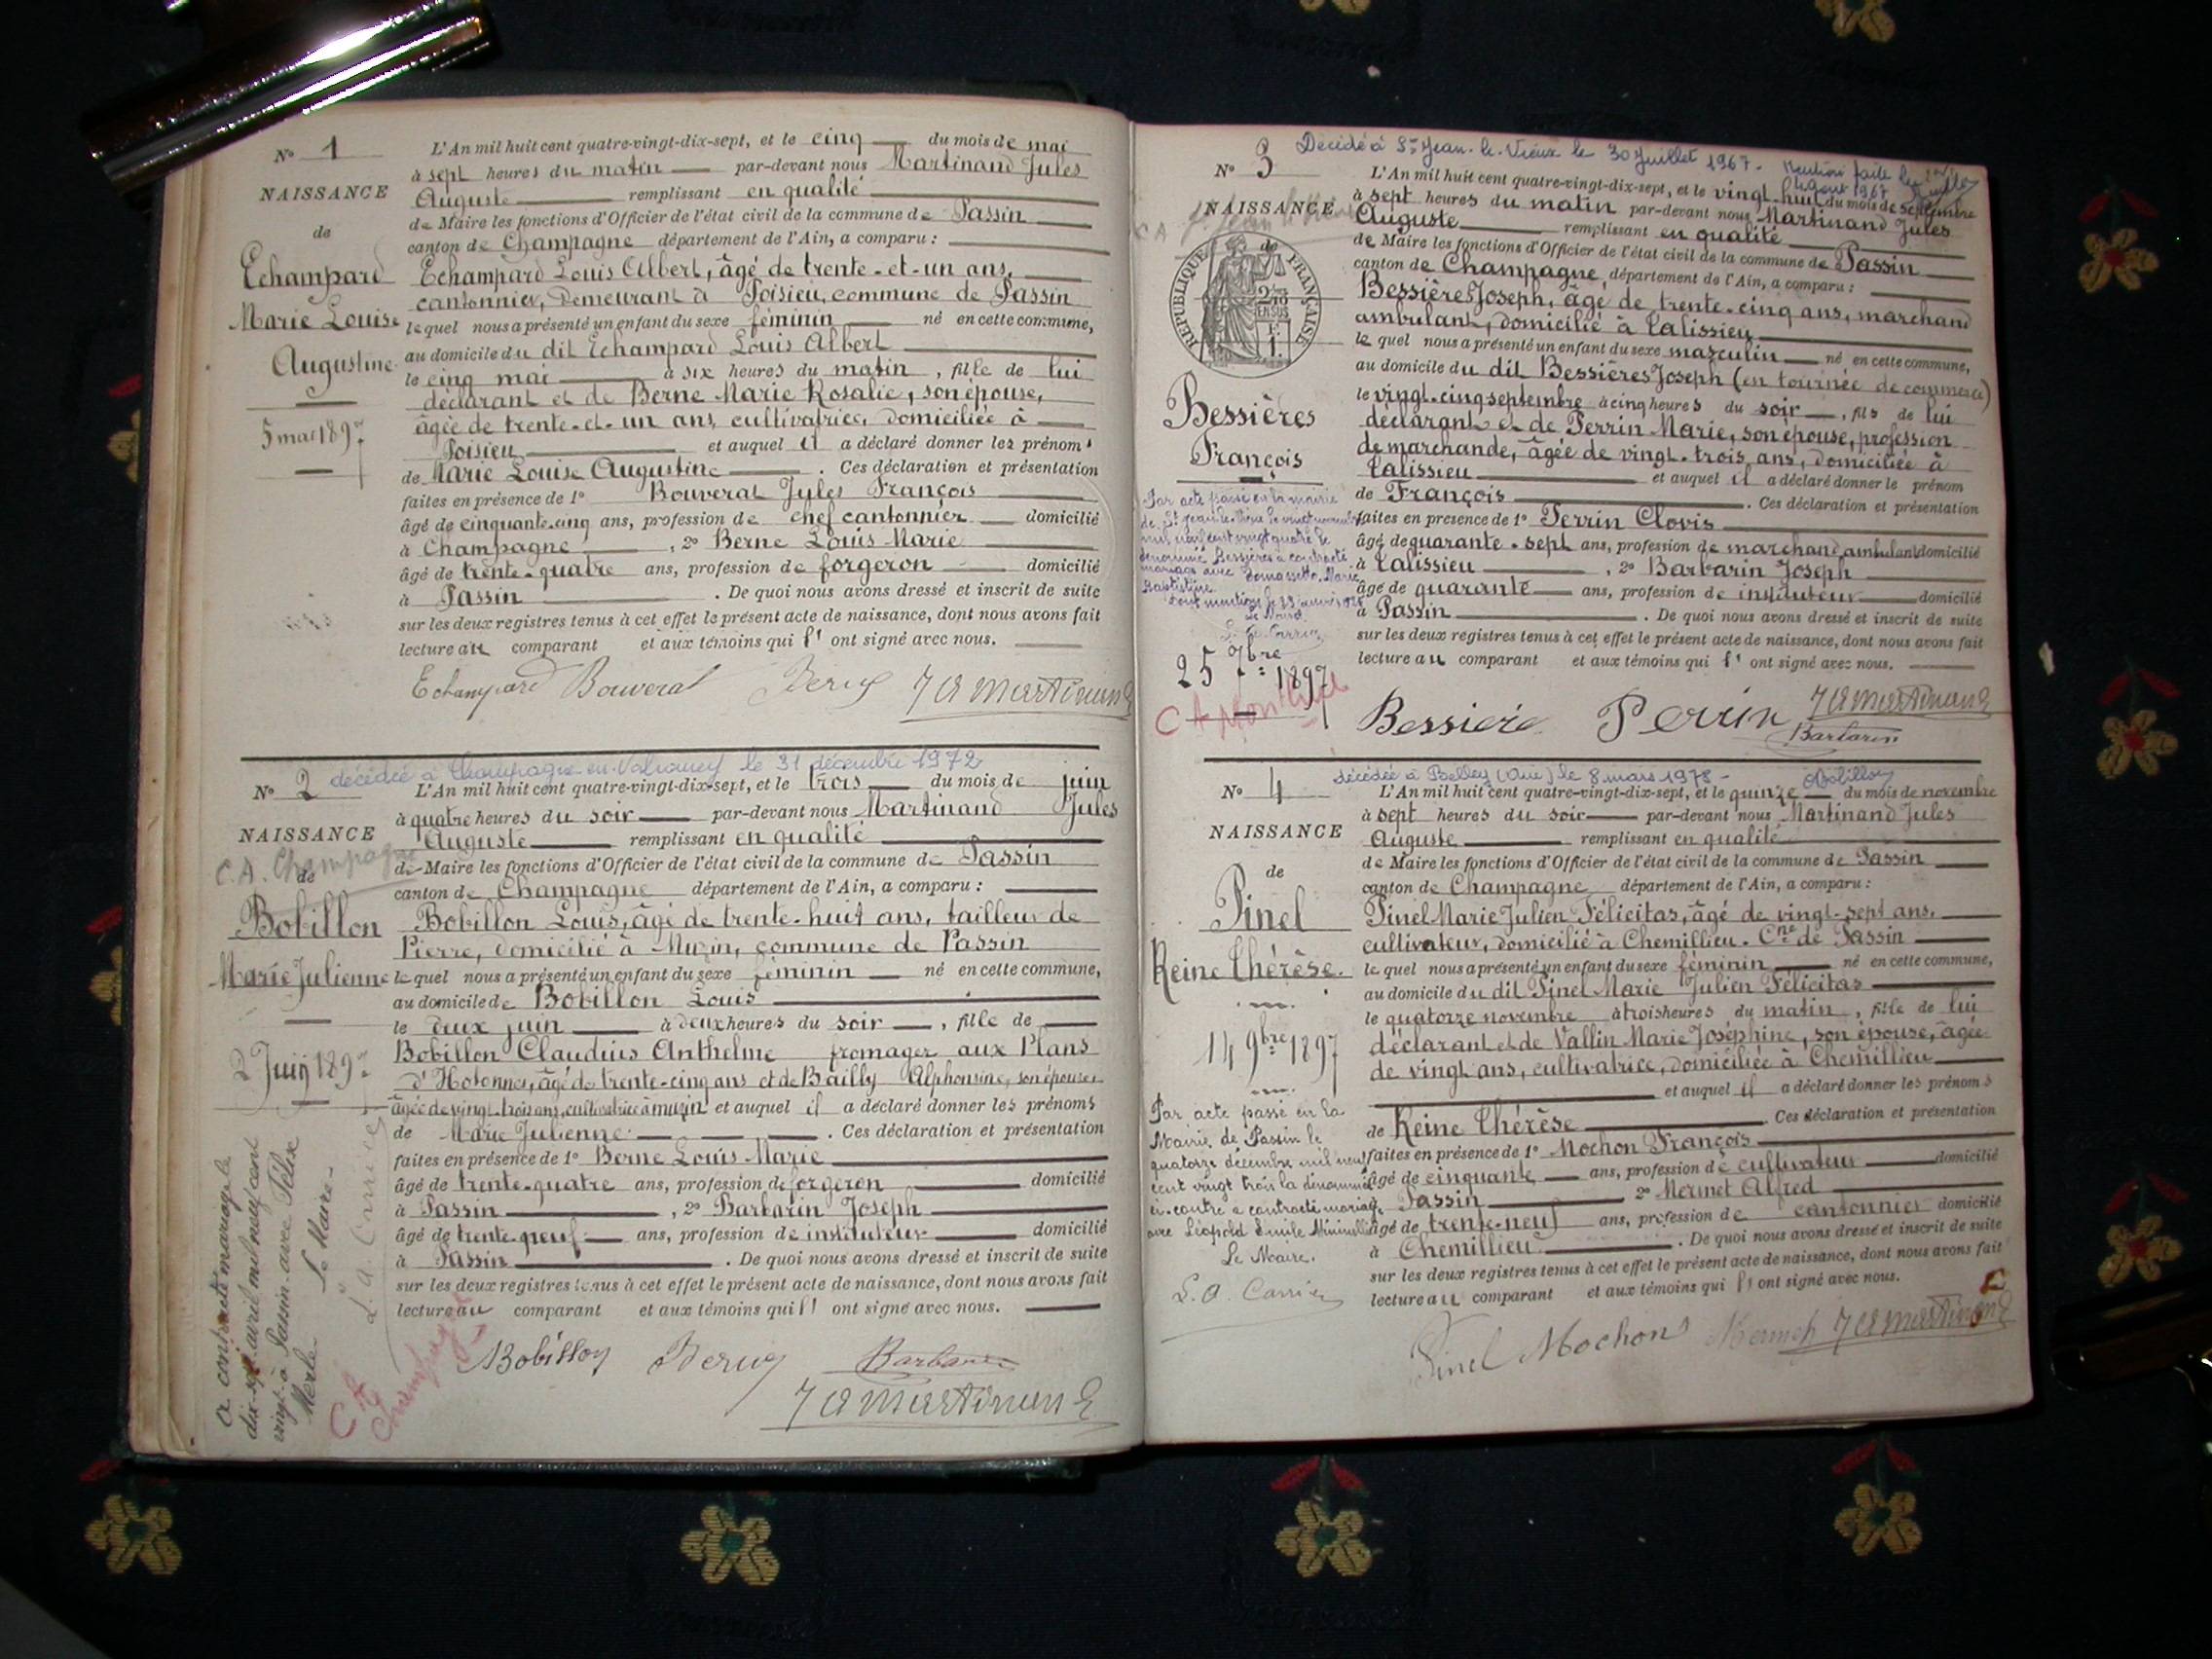 N° 1
NAISSANCE
de
Echampard
Marie Louise
Augustine
5 mai 1897
L'An mil huit cent quatre-vingt-dix-sept, et le cinq du mois de mai
à sept heures du matin par-devant nous Martinand Jules
Auguste remplissant en qualité
de Maire les fonctions d'Officier de l'état civil de la commune de Passin
canton de Champagne département de l'Ain, a comparu :
Echampard Louis Albert, âgé de trente-et-un ans,
cantonnier, demeurant à Poisieu, commune de Passin
lequel nous a présenté un enfant du sexe féminin né en cette commune,
au domicile du dit Echampard Louis Albert
le cinq mai à six heures du matin, fille de lui
déclarant et de Berne Marie Rosalie, son épouse,
âgée de trente-et-un ans, cultivatrice, domiciliée à
Poisieu et auquel il a déclaré donner les prénoms
de Marie Louise Augustine. Ces déclaration et présentation
faites en présence de 1° Bouverat Jules François
âgé de cinquante-cinq ans, profession de chef cantonnier domicilié
à Champagne, 2° Berne Louis Marie
âgé de trente-quatre ans, profession de forgeron domicilié
à Passin. De quoi nous avons dressé et inscrit de suite
sur les deux registres tenus à cet effet le présent acte de naissance, dont nous avons fait
lecture au comparant et aux témoins qui l' ont signé avec nous.
Echampard Bouverat Berne J A Martinand
décédée à Champagne-en-Valromey le 31 décembre 1972
N° 2
NAISSANCE
C.A. Champagne
de
Bobillon
Marie Julienne
2 Juin 1897
L'An mil huit cent quatre-vingt-dix-sept, et le trois du mois de juin
à quatre heures du soir par-devant nous Martinand Jules
Auguste remplissant en qualité
de Maire les fonctions d'Officier de l'état civil de la commune de Passin
canton de Champagne département de l'Ain, a comparu :
Bobillon Louis, âgé de trente-huit ans, tailleur de
Pierre, domicilié à Muzin, commune de Passin
lequel nous a présenté un enfant du sexe féminin né en cette commune,
au domicile de Bobillon Louis
le deux juin à deux heures du soir, fille de
Bobillon Claudius Anthelme fromager aux Plans
d'Hotonnes, âgé de trente-cinq ans et de Bailly Alphonsine, son épouse
âgée de vingt-trois ans, cultivatrice à muzin et auquel il a déclaré donner les prénoms
de Marie Julienne. Ces déclaration et présentation
faites en présence de 1° Berne Louis Marie
âgé de trente-quatre ans, profession de forgeron domicilié
à Passin, 2° Barbarin Joseph
âgé de trente-neuf ans, profession de instituteur domicilié
à Passin. De quoi nous avons dressé et inscrit de suite
sur les deux registres tenus à cet effet le présent acte de naissance, dont nous avons fait
lecture au comparant et aux témoins qui l' ont signé avec nous.
a contracté mariage le
dix-sept avril mil neuf cent
vingt à Passin avec Félix
Merle. Le Maire
L. A. Carrier
CA Champagne
Bobillon Berne Barbarin
J A Martinand
Décédé à St Jean-le-Vieux le 30 Juillet 1967. Mention faite le
août 1967
N° 3
NAISSANCE
de
RÉPUBLIQUE FRANÇAISE
Bessières
François
Par acte passé en la mairie
de St Jean-le-Vieux le vingt
mil neuf cent vingt quatre le
dénommé Bessières a contracté
mariage avec Marie
Le Maire
25 7bre 1897
L'An mil huit cent quatre-vingt-dix-sept, et le vingt-huit du mois de septembre
à sept heures du matin par-devant nous Martinand Jules
Auguste remplissant en qualité
de Maire les fonctions d'Officier de l'état civil de la commune de Passin
canton de Champagne, département de l'Ain, a comparu :
Bessières Joseph, âgé de trente-cinq ans, marchand
ambulant, domicilié à Talissieu
lequel nous a présenté un enfant du sexe masculin né en cette commune,
au domicile du dit Bessières Joseph (en tournée de commerce)
le vingt-cinq septembre à cinq heures du soir, fils de lui
déclarant et de Perrin Marie, son épouse, profession
de marchande, âgée de vingt-trois ans, domiciliée à
Talissieu et auquel il a déclaré donner le prénom
de François. Ces déclaration et présentation
faites en présence de 1° Perrin Clovis
âgé de quarante-sept ans, profession de marchand ambulant domicilié
à Talissieu, 2° Barbarin Joseph
âgé de quarante ans, profession de instituteur domicilié
à Passin. De quoi nous avons dressé et inscrit de suite
sur les deux registres tenus à cet effet le présent acte de naissance, dont nous avons fait
lecture au comparant et aux témoins qui l' ont signé avec nous.
Bessiere Perrin J A Martinand
Barbarin
décédée à Belley (Ain) le 8 mars 1978 - Bobillon
N° 4
NAISSANCE
de
Pinel
Reine Thérèse.
14 9bre 1897
Par acte passé en la
Mairie de Passin le
quatorze décembre mil neuf
cent vingt trois la dénommée
ci-contre a contracté mariage
avec Léopold Emile
Le Maire,
L. A. Carrier
L'An mil huit cent quatre-vingt-dix-sept, et le quinze du mois de novembre
à sept heures du soir par-devant nous Martinand Jules
Auguste remplissant en qualité
de Maire les fonctions d'Officier de l'état civil de la commune de Passin
canton de Champagne département de l'Ain, a comparu :
Pinel Marie Julien Félicitas, âgé de vingt-sept ans,
cultivateur, domicilié à Chemillieu. Cne de Passin
lequel nous a présenté un enfant du sexe féminin né en cette commune,
au domicile du dit Pinel Marie Julien Félicitas
le quatorze novembre à trois heures du matin, fille de lui
déclarant et de Vallin Marie Joséphine, son épouse, âgée
de vingt ans, cultivatrice, domiciliée à Chemillieu
et auquel il a déclaré donner les prénoms
de Reine Thérèse. Ces déclaration et présentation
faites en présence de 1° Mochon François
âgé de cinquante ans, profession de cultivateur domicilié
à Passin 2° Mermet Alfred
âgé de trente-neuf ans, profession de cantonnier domicilié
à Chemillieu. De quoi nous avons dressé et inscrit de suite
sur les deux registres tenus à cet effet le présent acte de naissance, dont nous avons fait
lecture au comparant et aux témoins qui l' ont signé avec nous.
Pinel Mochon Mermet J A Martinand